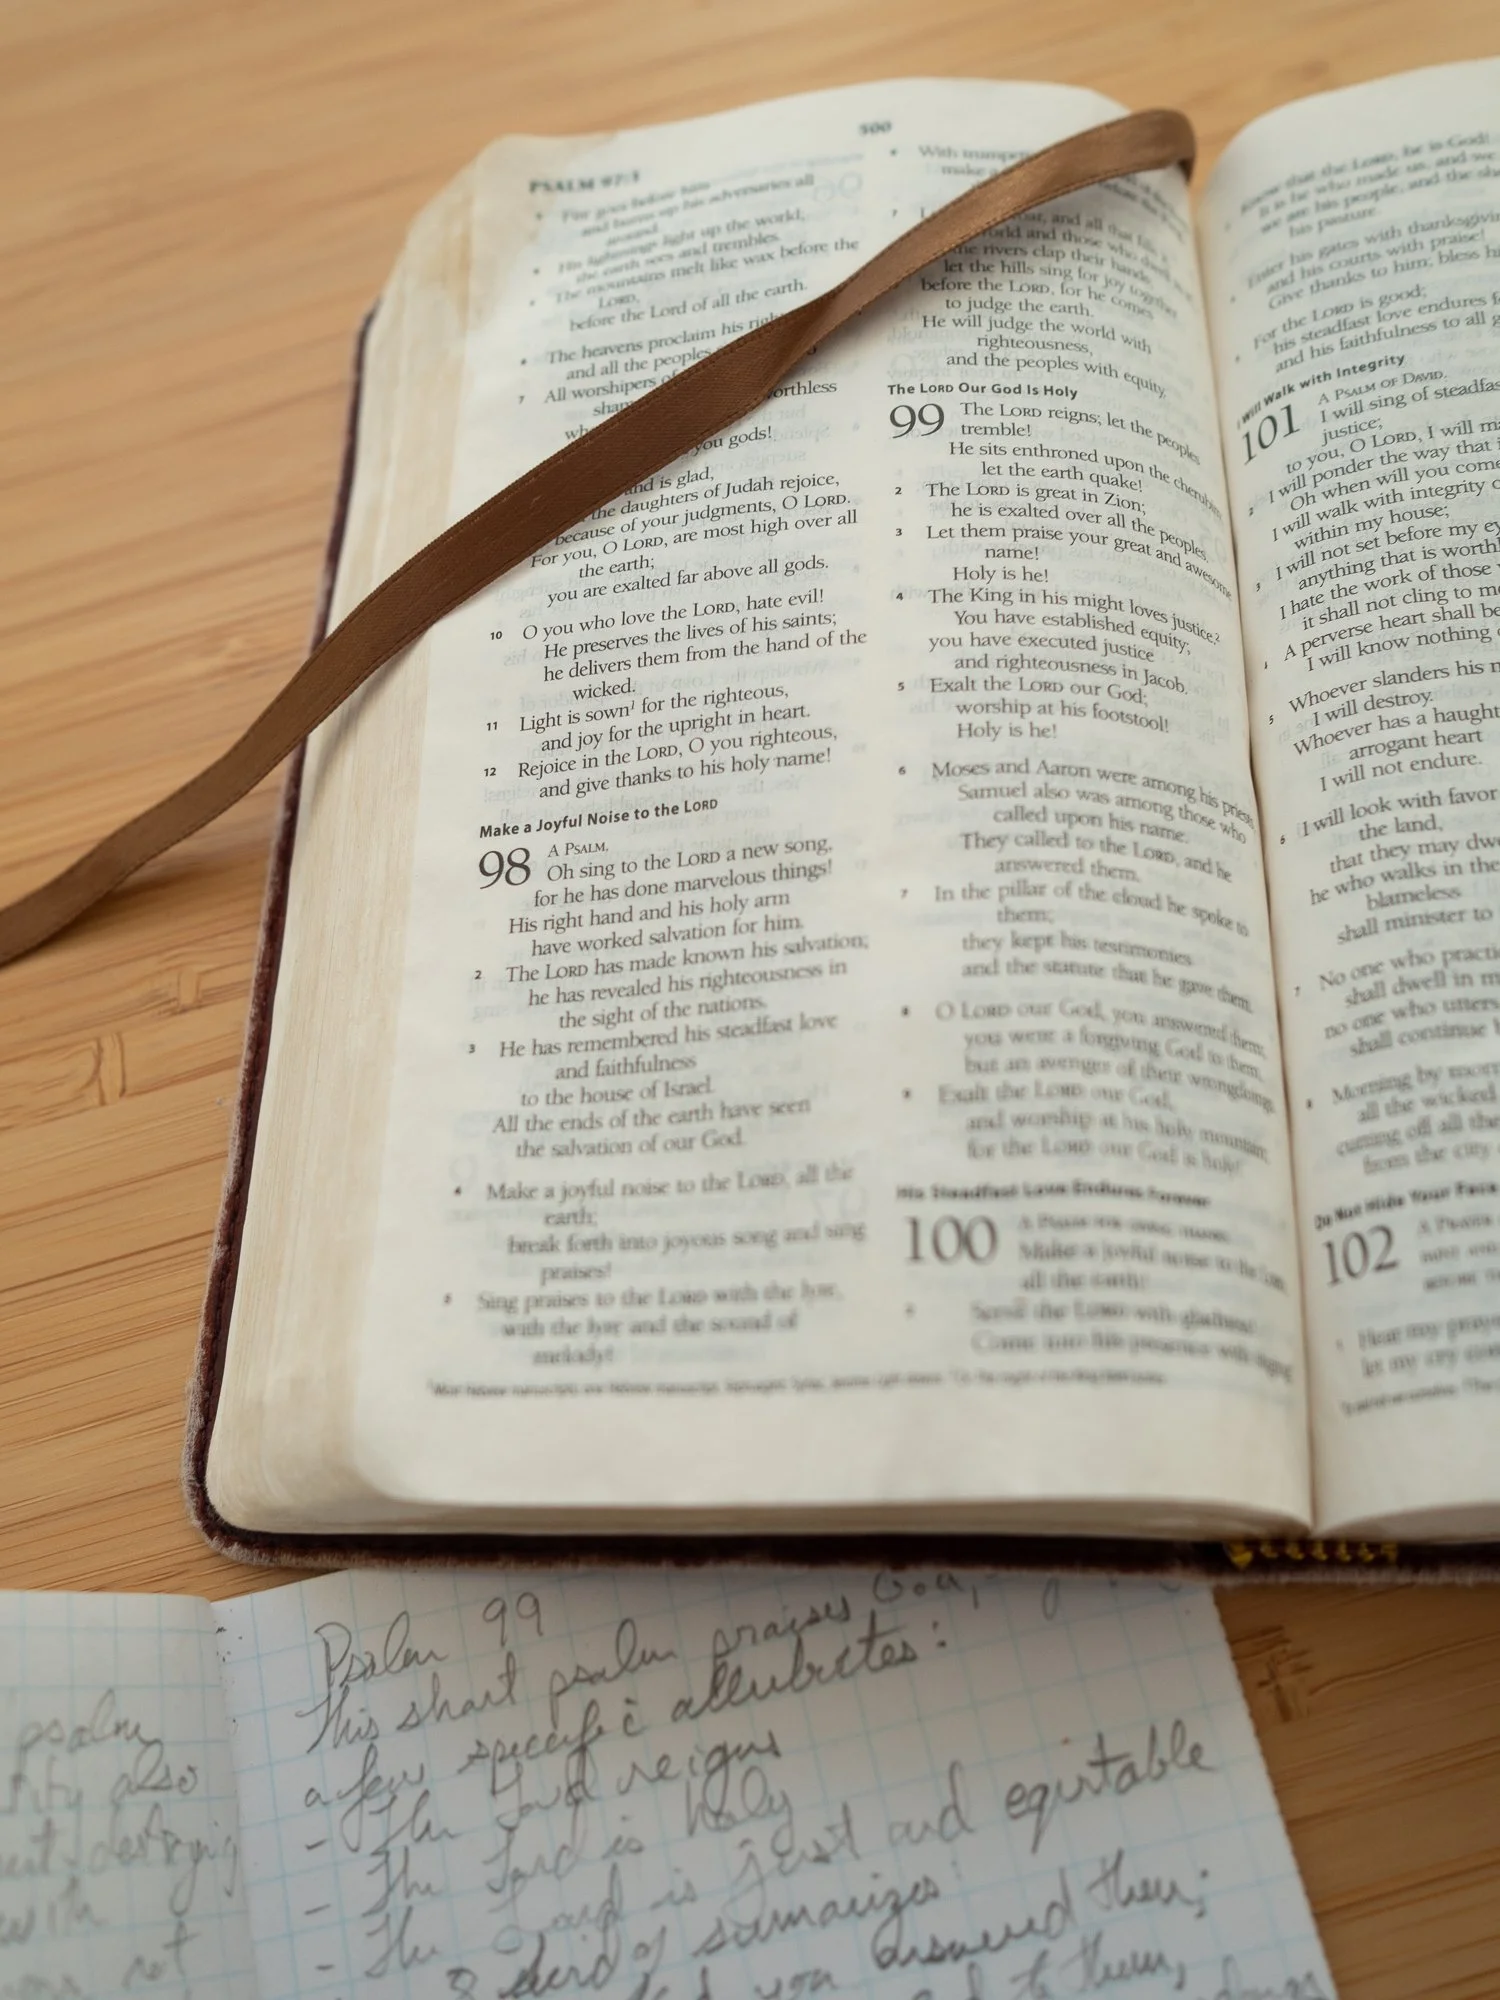 500
PSALM 97:3
Fire goes before him
and burns up his adversaries all
around.
His lightnings light up the world;
the earth sees and trembles.
The mountains melt like wax before the
LORD,
before the Lord of all the earth.
The heavens proclaim his
and all the peoples
7 All worshipers
orthless
you gods!
and is glad,
the daughters of Judah rejoice,
because of your judgments, O LORD.
For you, O LORD, are most high over all
the earth;
you are exalted far above all gods.
10 O you who love the LORD, hate evil!
He preserves the lives of his saints;
he delivers them from the hand of the
wicked.
11 Light is sown¹ for the righteous,
and joy for the upright in heart.
12 Rejoice in the LORD, O you righteous,
and give thanks to his holy name!
Make a Joyful Noise to the LORD
98 A PSALM.
Oh sing to the LORD a new song,
for he has done marvelous things!
His right hand and his holy arm
have worked salvation for him.
2 The LORD has made known his salvation;
he has revealed his righteousness in
the sight of the nations.
3 He has remembered his steadfast love
and faithfulness
to the house of Israel.
All the ends of the earth have seen
the salvation of our God.
4 Make a joyful noise to the LORD, all the
earth;
break forth into joyous song and sing
praises!
5 Sing praises to the LORD with the lyre,
with the lyre and the sound of
melody!
With
make a
7
and all that
world and those who
the rivers clap their hands;
let the hills sing for joy together
before the LORD, for he comes
to judge the earth.
He will judge the world with
righteousness,
and the peoples with equity.
The LORD Our God Is Holy
99 The LORD reigns; let the peoples
tremble!
He sits enthroned upon the cherubim;
let the earth quake!
2 The LORD is great in Zion;
he is exalted over all the peoples.
3 Let them praise your great and awesome
name!
Holy is he!
4 The King in his might loves justice.²
You have established equity;
you have executed justice
and righteousness in Jacob.
5 Exalt the LORD our God;
worship at his footstool!
Holy is he!
6 Moses and Aaron were among his priests,
Samuel also was among those who
called upon his name.
They called to the LORD, and he
answered them.
7 In the pillar of the cloud he spoke to
them;
they kept his testimonies
and the statute that he gave them.
8 O LORD our God, you answered them;
you were a forgiving God to them,
but an avenger of their wrongdoings.
9 Exalt the LORD our God,
and worship at his holy mountain;
for the LORD our God is holy!
His Steadfast Love Endures Forever
100 A PSALM FOR GIVING THANKS.
Make a joyful noise to the LORD,
all the earth!
Serve the LORD with gladness!
Come into his presence with singing
Know that the LORD, he is God!
It is he who made us, and we
we are his people, and the
his pasture.
Enter his gates with
and his courts with praise!
Give thanks to him; bless
For the LORD is good;
his steadfast love endures
and his faithfulness to all
I Will Walk with Integrity
101 A PSALM OF DAVID.
I will sing of
justice;
to you, O LORD, I will
I will ponder the way that
Oh when will you come
I will walk with integrity
within my house;
3 I will not set before my
anything that is
I hate the work of those
it shall not cling to
4 A perverse heart shall
I will know nothing
5 Whoever slanders his
I will destroy.
Whoever has a
arrogant heart
I will not endure.
6 I will look with favor
the land,
that they may
he who walks in the
blameless
shall minister to
7 No one who
shall dwell in
no one who utters
shall continue
8 Morning by
all the wicked
cutting off all the
from the city
Do Not Hide Your Face
102
Hear my
let my cry
Psalm 99
This short psalm praises God,
a few specific attributes:
- The Lord reigns
- The Lord is holy
- The Lord is just and equitable
8 kind of summarizes:
you answered them;
to them,
psalm
also
destroying
with
not